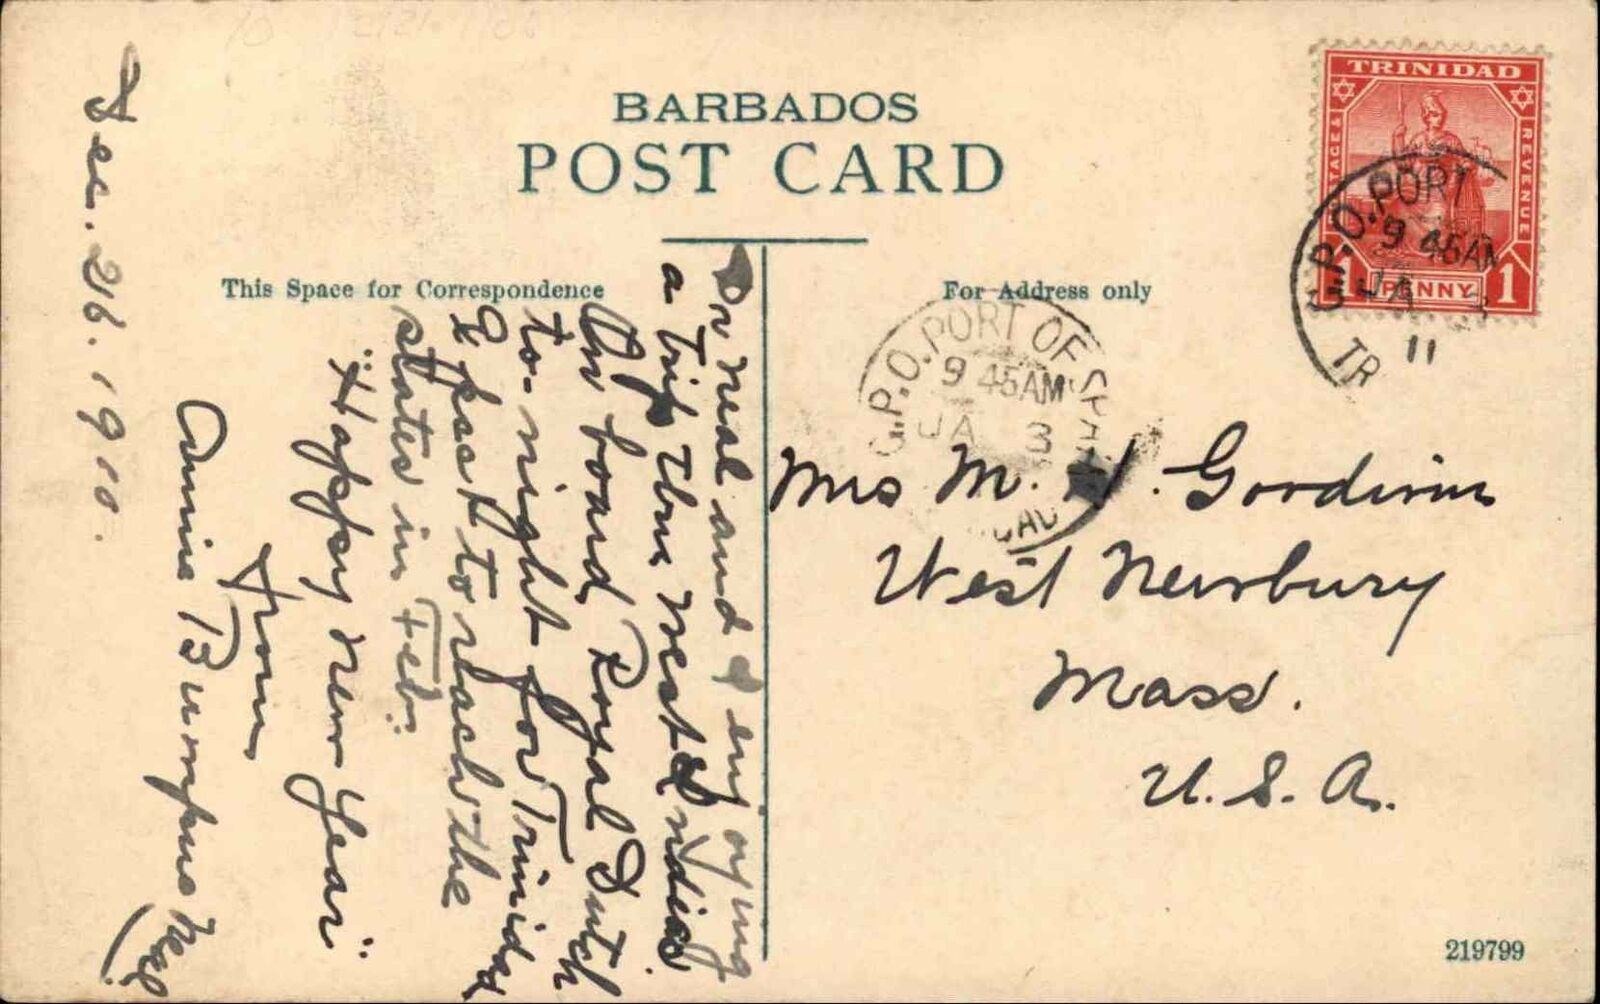 BARBADOS
POST CARD
This Space for Correspondence
For Address only
TRINIDAD
REVENUE
1 PENNY 1
G.P.O. PORT
9 45AM
JA 3
11
TR
G.P.O. PORT OF SPAIN
9 45AM
JA 3
Dec. 26. 1910.
Dr Neal and I enjoying
a trip thru West Indies
On board Royal Dutch
to-night for Trinidad
Expect to reach the
states in Feb.
"Happy New Year"
From
Annie Bumpus Neal
Mrs M. . Goodwin
West Newbury
Mass.
U.S.A.
219799